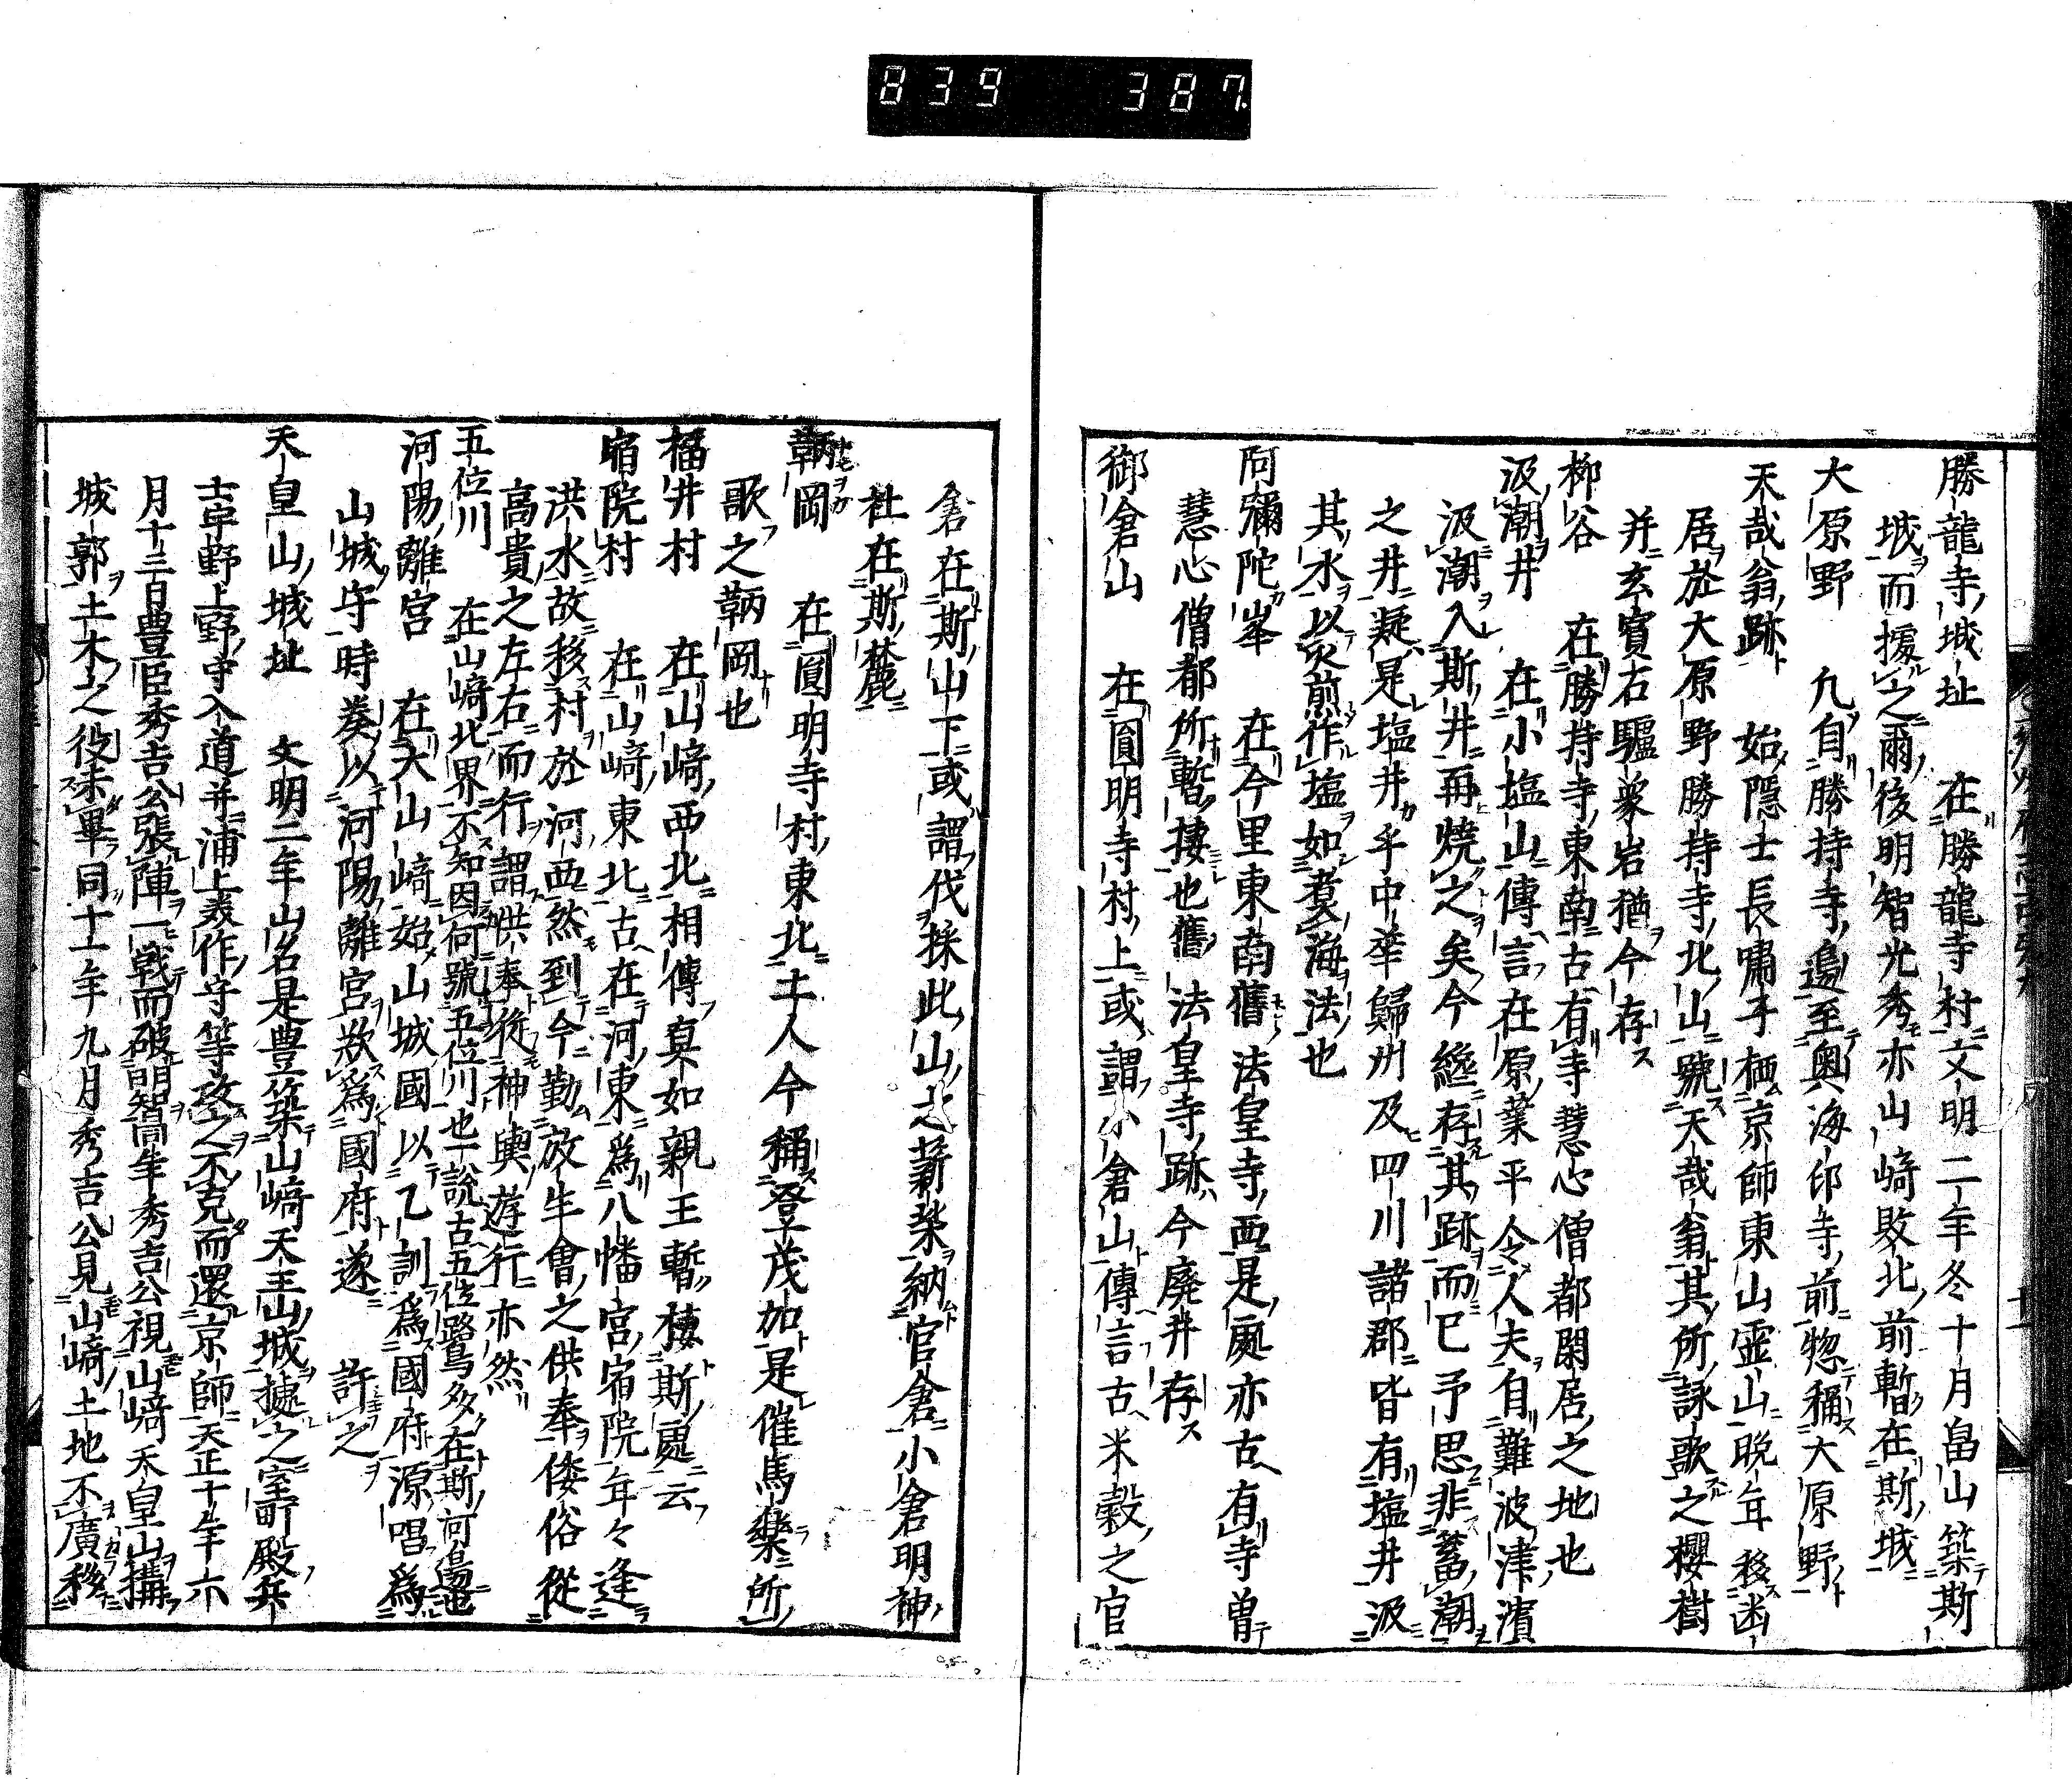 839 387
勝龍寺城址 在勝龍寺村文明二年冬十月畠山築斯
城而援之爾後明智光秀亦山崎敗北前暫在斯城
大原野 凡自勝持寺邊至奥海印寺前惣稱大原野
天哉翁跡 始隱士長嘯子栖京師東山霊山晩年移
居於大原野勝持寺北山號天哉翁其所詠歌之櫻樹
并玄賓右驢衆岩猶今存
柳谷 在勝持寺東南古有寺慧心僧都閑居之地也
汲潮井 在小塩山傳言在原業平令人夫自難波津濱
汲潮入斯井再燒之矣今纔存其跡而已予思非蓄潮
之井疑是塩井乎中華歸州及四川諸郡皆有塩井汲
其水以煎作塩如煮海法也
阿彌陀峯 在今里東南舊法皇寺西是處亦古有寺曽
慧心僧都所暫棲也舊法皇寺跡今廃井存
御倉山 在圓明寺村上或謂小倉山傳言古米穀之官
倉在斯山下或謂伐採此山之薪柴納官倉小倉明神
社在斯麓
鞆岡 在圓明寺村東北土人今稱登茂加是催馬樂所
歌之鞆岡也
福井村 在山崎西北相傳真如親王暫棲斯處云
宿院村 在山崎東北古在河東爲八幡宮宿院年々逢
洪水故移村於河西然到今勤放生會之供奉倭俗從
高貴之左右而行謂供奉從神輿游行亦然
五位川 在山崎北界不知因何號五位川也一説古五位鷺多在斯河邊
河陽離宮 在大山崎始山城國以乙訓爲國府源唱爲
山城守時奏以河陽離宮欲爲國府遂許之
天皇山城址 文明二年山名是豊築山崎天王山城據之室町殿兵
士宇野上野守入道并浦上美作守等攻之不克而還京師天正十年六
月十三日豊臣秀吉公張陣一戰而破明智同年秀吉公視山崎天皇山搆
城郭土木之役未畢同十一年九月秀吉公見山崎土地不廣移